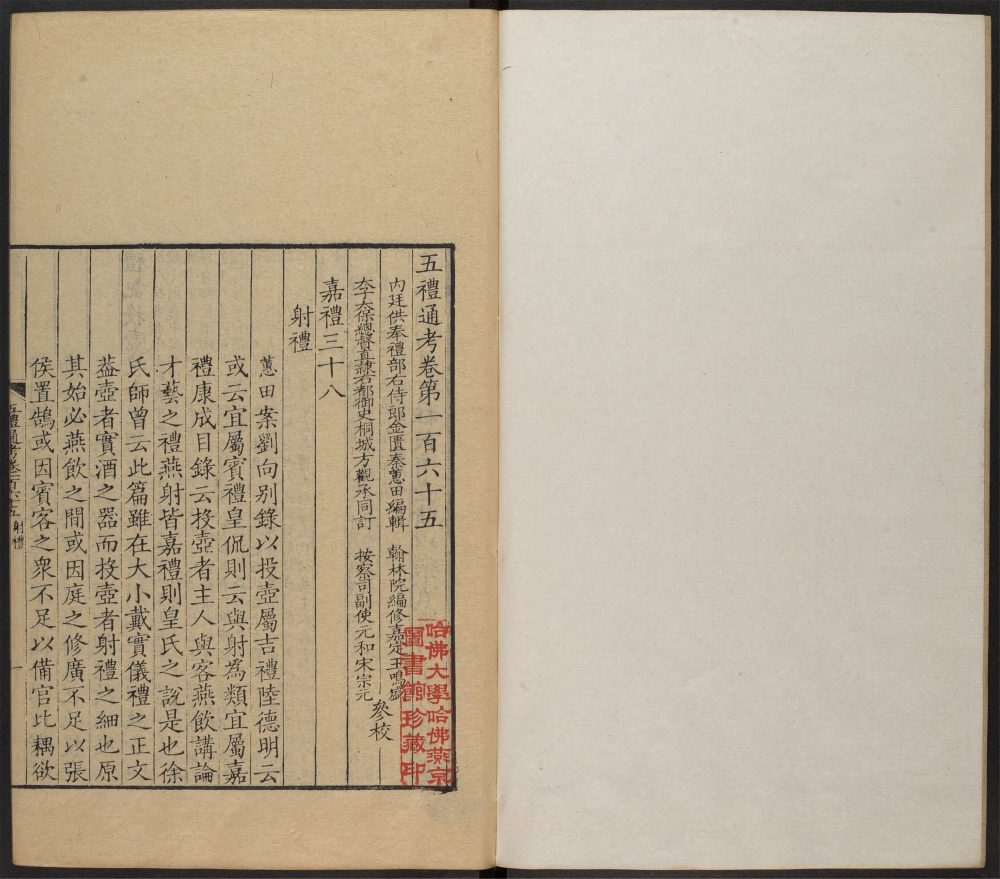 五禮通考卷第一百六十五
內廷供奉禮部右侍郎金匱秦蕙田編輯　翰林院編修嘉定王鳴盛
太子太保總督直隸右都御史桐城方觀承同訂　按察司副使元和宋宗元
參校
嘉禮三十八
射禮
蕙田案劉向别錄以投壺屬吉禮陸德明云
或云宜屬賓禮皇侃則云與射為類宜屬嘉
禮康成目錄云投壺者主人與客燕飲講論
才藝之禮燕射皆嘉禮則皇氏之說是也徐
氏師曾云此篇雖在大小戴實儀禮之正文
葢壺者實酒之器而投壺者射禮之細也原
其始必燕飲之間或因庭之修廣不足以張
侯置鵠或因賓客之衆不足以備官比耦欲
五禮通考卷一百六十五 射禮
一
哈佛大學哈佛燕京
圖書館珍藏印